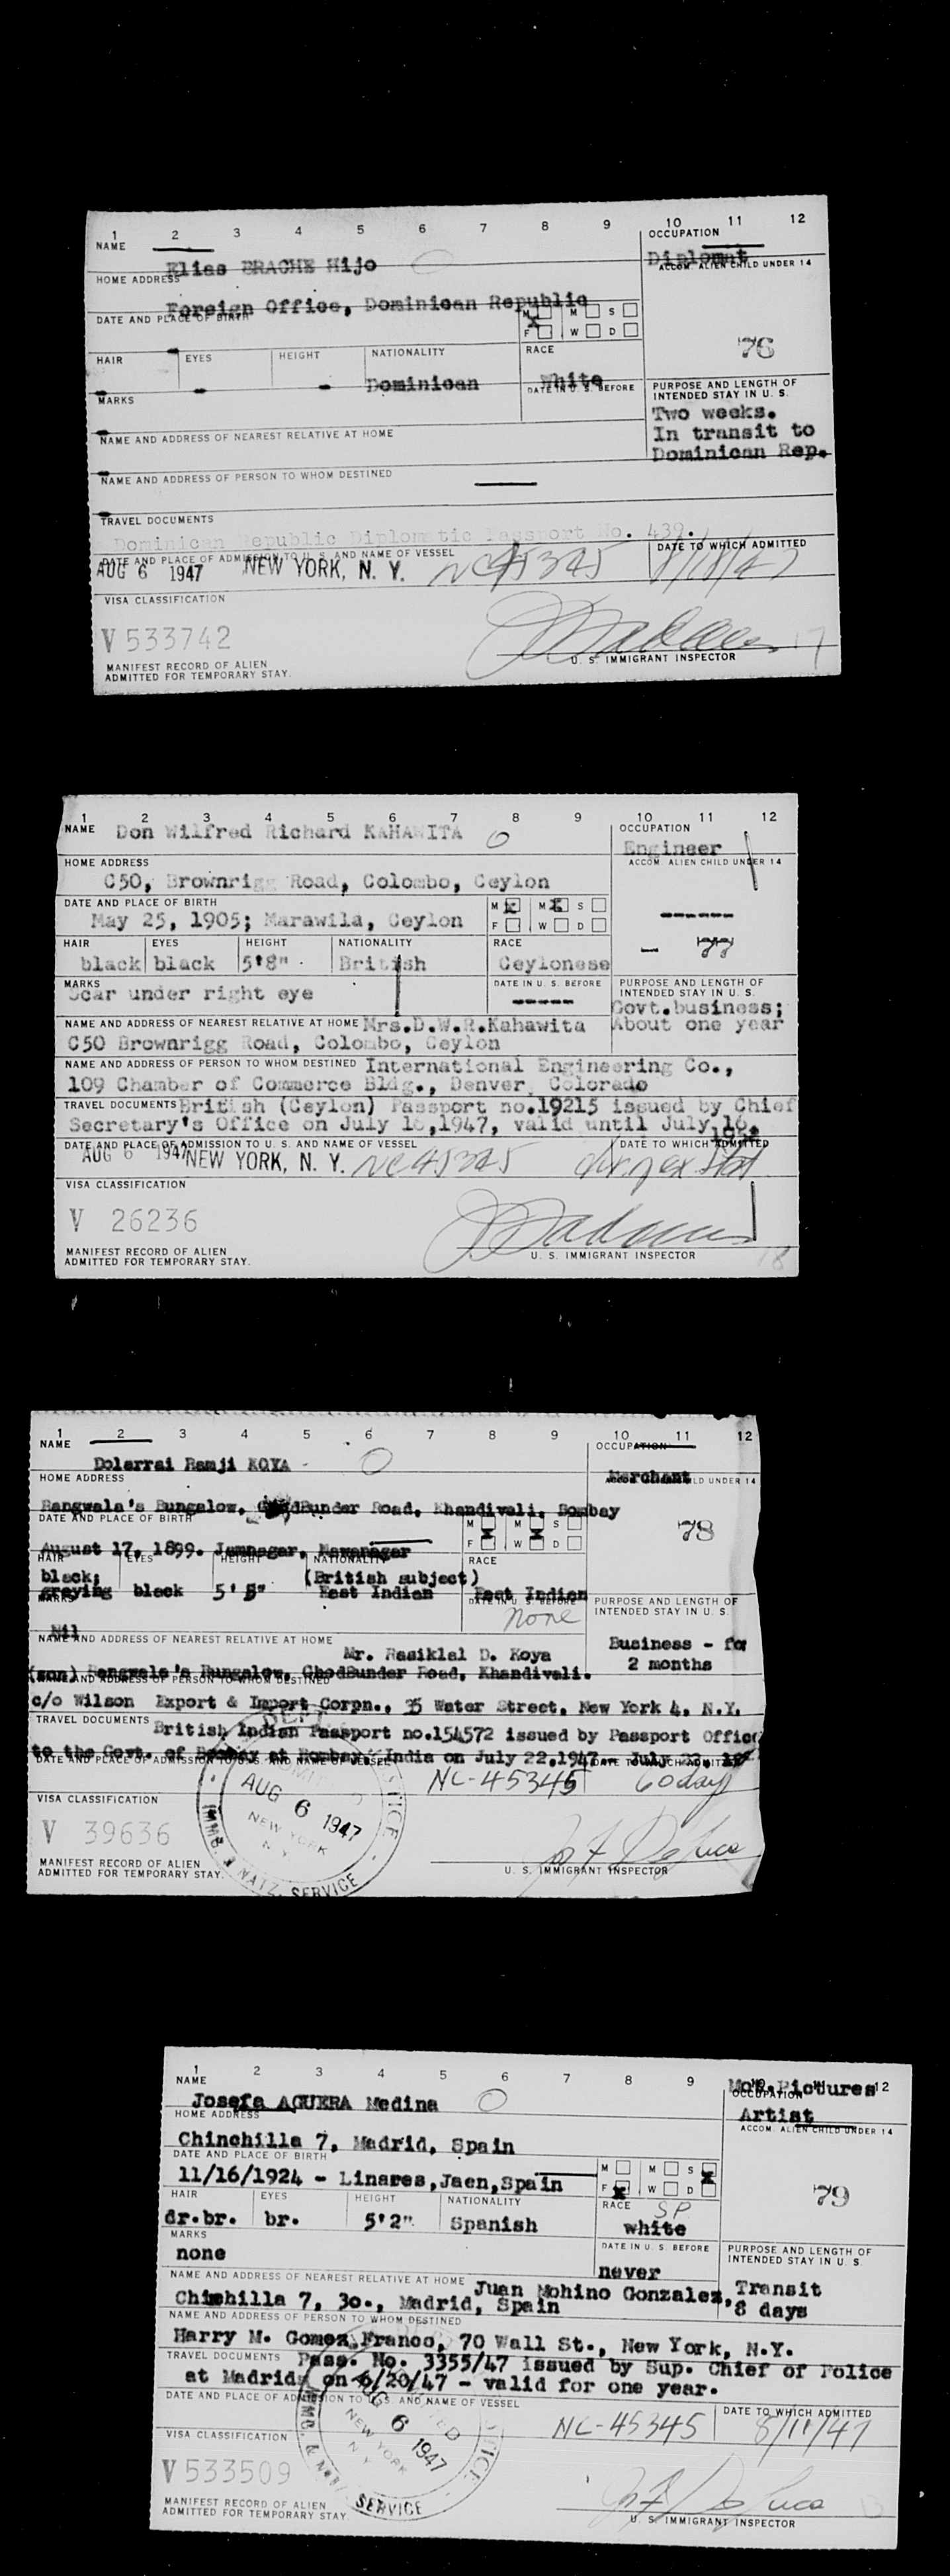 1 2 3 4 5 6 7 8 9 10 11 12
NAME OCCUPATION
Elias BRACHE Hijo Diplomat
HOME ADDRESS ACCOM. ALIEN CHILD UNDER 14
Foreign Office, Dominican Republic
DATE AND PLACE OF BIRTH M X M S
F W D
76
HAIR EYES HEIGHT NATIONALITY RACE
Dominican White
MARKS DATE IN U. S. BEFORE PURPOSE AND LENGTH OF
INTENDED STAY IN U. S.
Two weeks.
NAME AND ADDRESS OF NEAREST RELATIVE AT HOME In transit to
Dominican Rep.
NAME AND ADDRESS OF PERSON TO WHOM DESTINED
TRAVEL DOCUMENTS
Dominican Republic Diplomatic Passport No. 439.
DATE AND PLACE OF ADMISSION TO U. S. AND NAME OF VESSEL DATE TO WHICH ADMITTED
AUG 6 1947 NEW YORK, N. Y. NC45345
VISA CLASSIFICATION
V 533742
MANIFEST RECORD OF ALIEN
ADMITTED FOR TEMPORARY STAY.
U. S. IMMIGRANT INSPECTOR 17
1 2 3 4 5 6 7 8 9 10 11 12
NAME Don Wilfred Richard KAHAWITA OCCUPATION
Engineer
HOME ADDRESS ACCOM. ALIEN CHILD UNDER 14
C50, Brownrigg Road, Colombo, Ceylon
DATE AND PLACE OF BIRTH M X M X S
May 25, 1905; Marawila, Ceylon F W D
HAIR EYES HEIGHT NATIONALITY RACE - 77
black black 5'8" . British Ceylonese
MARKS DATE IN U. S. BEFORE PURPOSE AND LENGTH OF
Scar under right eye ----- INTENDED STAY IN U. S.
Govt.business;
NAME AND ADDRESS OF NEAREST RELATIVE AT HOME Mrs.D.W.R.Kahawita About one year
C50 Brownrigg Road, Colombo, Ceylon
NAME AND ADDRESS OF PERSON TO WHOM DESTINED International Engineering Co.,
109 Chamber of Commerce Bldg., Denver, Colorado
TRAVEL DOCUMENTS British (Ceylon) Passport no.19215 issued by Chief
Secretary's Office on July 16,1947, valid until July 16,
DATE AND PLACE OF ADMISSION TO U. S. AND NAME OF VESSEL DATE TO WHICH ADMITTED
AUG 6 1947 NEW YORK, N. Y. NC45345
VISA CLASSIFICATION
V 26236
MANIFEST RECORD OF ALIEN
ADMITTED FOR TEMPORARY STAY.
U. S. IMMIGRANT INSPECTOR 18
1 2 3 4 5 6 7 8 9 10 11 12
NAME OCCUPATION
Dolarrai Ramji KOYA
HOME ADDRESS Merchant
Rangwala's Bungalow, GhodBunder Road, Khandivali, Bombay
DATE AND PLACE OF BIRTH M X M X S
F W D
78
August 17, 1899. Jamnagar, Nawanagar
HAIR EYES HEIGHT NATIONALITY RACE
black; (British subject)
greying black 5' 5" East Indian East Indian
MARKS DATE IN U. S. BEFORE none PURPOSE AND LENGTH OF
INTENDED STAY IN U. S.
Nil
NAME AND ADDRESS OF NEAREST RELATIVE AT HOME Business - for
Mr. Rasiklal D. Koya 2 months
(son) Rangwala's Bungalow, GhodBunder Road, Khandivali.
NAME AND ADDRESS OF PERSON TO WHOM DESTINED
c/o Wilson Export & Import Corpn., 35 Water Street, New York 4, N.Y.
TRAVEL DOCUMENTS British Indian Passport no.154572 issued by Passport Office
to the Govt. of Bombay at Bombay, India on July 22,1947
DATE AND PLACE OF ADMISSION TO U. S. AND NAME OF VESSEL DATE TO WHICH ADMITTED
NC-45345 60 days
AUG 6 1947
NEW YORK
N. Y.
IMMG. & NATZ. SERVICE
VISA CLASSIFICATION
V 39636
MANIFEST RECORD OF ALIEN
ADMITTED FOR TEMPORARY STAY.
U. S. IMMIGRANT INSPECTOR
1 2 3 4 5 6 7 8 9 12
NAME Mot.Pictures
OCCUPATION
Josefa AGUERA Medina Artist
HOME ADDRESS ACCOM. ALIEN CHILD UNDER 14
Chinchilla 7, Madrid, Spain
DATE AND PLACE OF BIRTH M M S X
11/16/1924 - Linares,Jaen,Spain F X W D
79
HAIR EYES HEIGHT NATIONALITY RACE SP
dr.br. br. 5'2" Spanish white
MARKS DATE IN U. S. BEFORE PURPOSE AND LENGTH OF
INTENDED STAY IN U. S.
none never
NAME AND ADDRESS OF NEAREST RELATIVE AT HOME Juan Mohino Gonzalez, Transit
Chinchilla 7, 3o., Madrid, Spain 8 days
NAME AND ADDRESS OF PERSON TO WHOM DESTINED
Harry M. Gomez Franco, 70 Wall St., New York, N.Y.
TRAVEL DOCUMENTS Pass. No. 3355/47 issued by Sup. Chief of Police
at Madrid, on 6/20/47 - valid for one year.
DATE AND PLACE OF ADMISSION TO U. S. AND NAME OF VESSEL DATE TO WHICH ADMITTED
NC-45345 8/11/47
AUG 6 1947
NEW YORK
N. Y.
IMMG. & SERVICE
VISA CLASSIFICATION
V 533509
MANIFEST RECORD OF ALIEN
ADMITTED FOR TEMPORARY STAY.
U. S. IMMIGRANT INSPECTOR